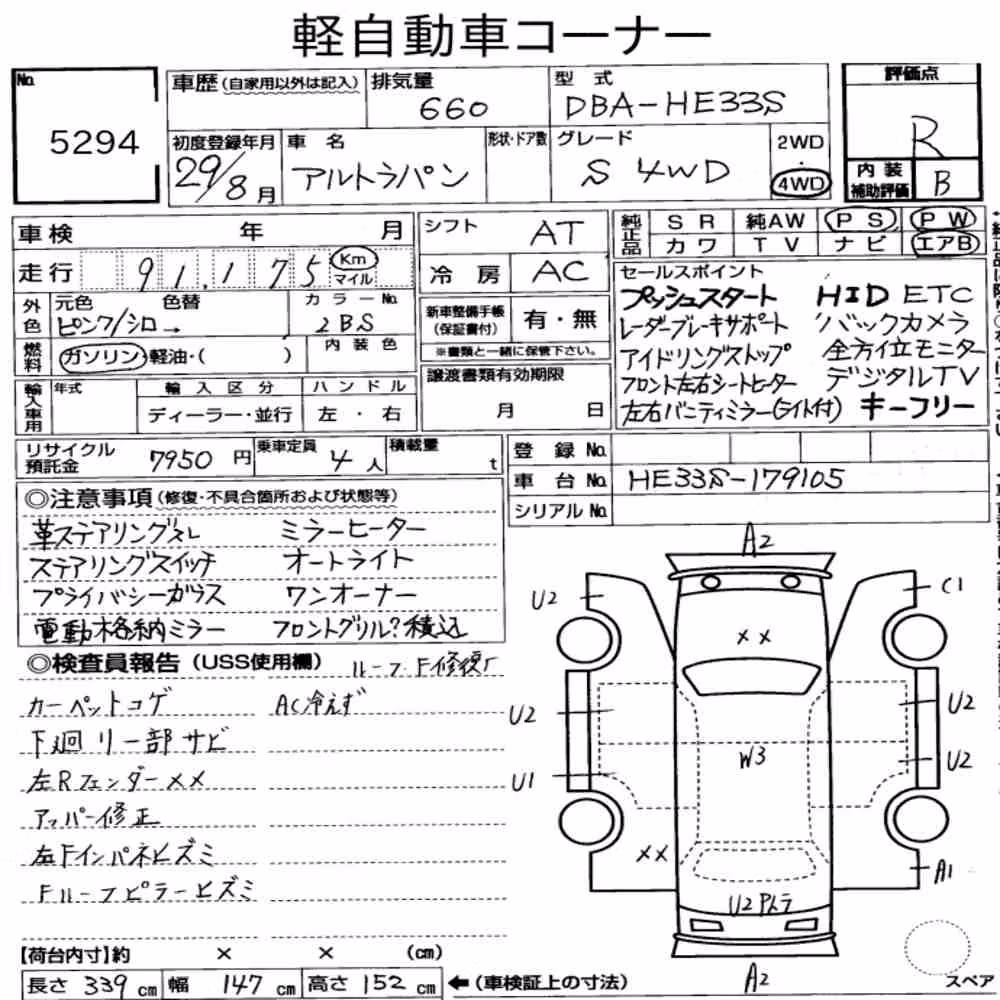 軽自動車コーナー
No. 5294
車歴(自家用以外は記入)
排気量 660
型式 DBA-HE33S
評価点 R
初度登録年月 29/8月
車名 アルトラパン
形状・ドア数
グレード S 4WD
2WD・4WD
内装補助評価 B
車検 年 月
走行 91,175 Km マイル
シフト AT
冷房 AC
純正品 SR 純AW PS PW
カワ TV ナビ エアB
外色 元色 色替 ピンク/シロ→
カラーNo. 2BS
内装色
燃料 ガソリン・軽油・( )
新車整備手帳(保証書付) 有・無
※書類と一緒に保管下さい。
セールスポイント
プッシュスタート HID ETC
レーダーブレーキサポート バックカメラ
アイドリングストップ 全方位モニター
フロント左右シートヒーター デジタルTV
左右バニティミラー(ライト付) キーフリー
輸入車用 年式 輸入区分 ハンドル
ディーラー・並行 左・右
譲渡書類有効期限
月 日
リサイクル預託金 7950円
乗車定員 4人
積載量 t
登録No.
車台No. HE33S-179105
シリアルNo.
◎注意事項(修復・不具合箇所および状態等)
革ステアリングスレ ミラーヒーター
ステアリングスイッチ オートライト
プライバシーガラス ワンオーナー
電動格納ミラー フロントグリル?積込
◎検査員報告(USS使用欄) ルーフF修復?
カーペットコゲ AC冷えず
下廻リ一部サビ
左Rフェンダー××
アッパー修正
左Fインパネヒズミ
Fルーフピラーヒズミ
A2
U2 C1
××
U2 U2
W3 U2
U1
××
A1
U2 Pトラ
A2
【荷台内寸】約 × × (cm)
長さ 339cm 幅 147cm 高さ 152cm ←(車検証上の寸法)
スペア